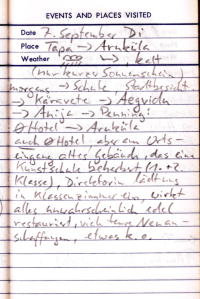 EVENTS AND PLACES VISITED
Date 7. September Di
Place Tapa → Aruküla
Weather → kalt
(nur kurzer Sonnenschein)
morgens → Schule, Stadtbesicht.
→ Käravete → Aegviidu
→ Anija → Penningi
Ø Hotel → Aruküla
auch Ø Hotel, aber am Orts-
eingang altes Gebäude, das eine
Kunstschule beherbergt (1.+2.
Klasse), Direktorin
in Klassenzimmer ein, wirkt
alles unwahrscheinlich edel
restauriert, viele teure Neuan-
schaffungen, etwas k.o.